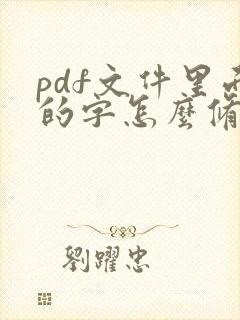 pdf文件里面
的字怎麼修
劉躍忠